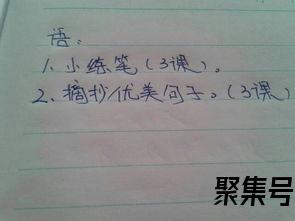 语：
1. 小练笔（3课）。
2. 摘抄优美句子。（3课）
聚集号